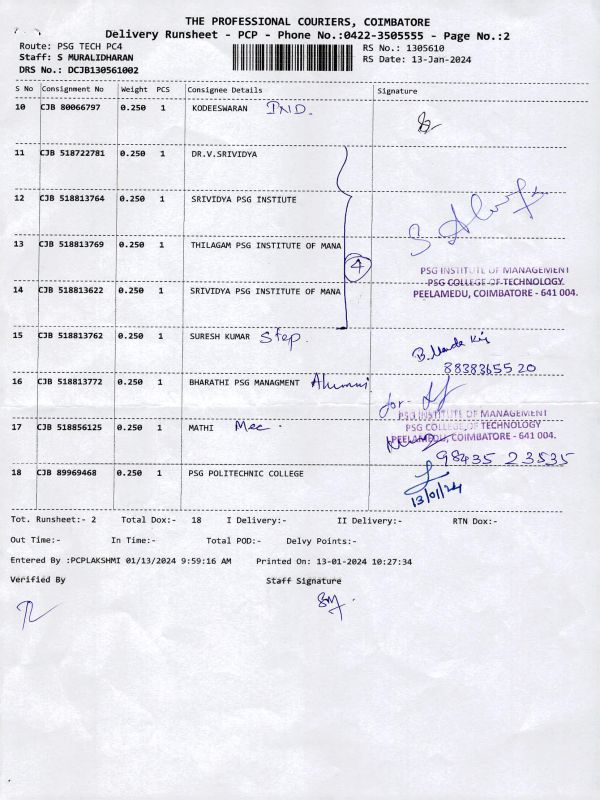 THE PROFESSIONAL COURIERS, COIMBATORE
Delivery Runsheet - PCP - Phone No.:0422-3505555 - Page No.:2
Route: PSG TECH PC4 RS No.: 1305610
Staff: S MURALIDHARAN RS Date: 13-Jan-2024
DRS No.: DCJB130561002
S No Consignment No Weight PCS Consignee Details Signature
10 CJB 80066797 0.250 1 KODEESWARAN IND.
11 CJB 518722781 0.250 1 DR.V.SRIVIDYA
12 CJB 518813764 0.250 1 SRIVIDYA PSG INSTIUTE
13 CJB 518813769 0.250 1 THILAGAM PSG INSTITUTE OF MANA
4
PSG INSTITUTE OF MANAGEMENT
PSG COLLEGE OF TECHNOLOGY
PEELAMEDU, COIMBATORE - 641 004.
14 CJB 518813622 0.250 1 SRIVIDYA PSG INSTITUTE OF MANA
15 CJB 518813762 0.250 1 SURESH KUMAR Step.
8838365520
16 CJB 518813772 0.250 1 BHARATHI PSG MANAGMENT Alumni
for-
PSG INSTITUTE OF MANAGEMENT
PSG COLLEGE OF TECHNOLOGY
PEELAMEDU, COIMBATORE - 641 004.
17 CJB 518856125 0.250 1 MATHI Mec.
98435 23535
18 CJB 89969468 0.250 1 PSG POLITECHNIC COLLEGE
13/01/24
Tot. Runsheet:- 2 Total Dox:- 18 I Delivery:- II Delivery:- RTN Dox:-
Out Time:- In Time:- Total POD:- Delvy Points:-
Entered By :PCPLAKSHMI 01/13/2024 9:59:16 AM Printed On: 13-01-2024 10:27:34
Verified By Staff Signature